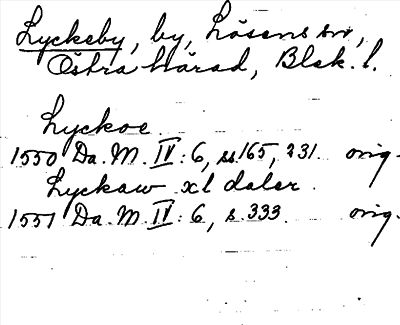 Lyckeby, by, Lösens sn,
Östra härad, Blek. l.
Lyckoe
1550 Da. M. IV: 6, ss 165, 231. orig.
Lyckaw xl daler.
1551 Da. M. IV: 6, s. 333. orig.